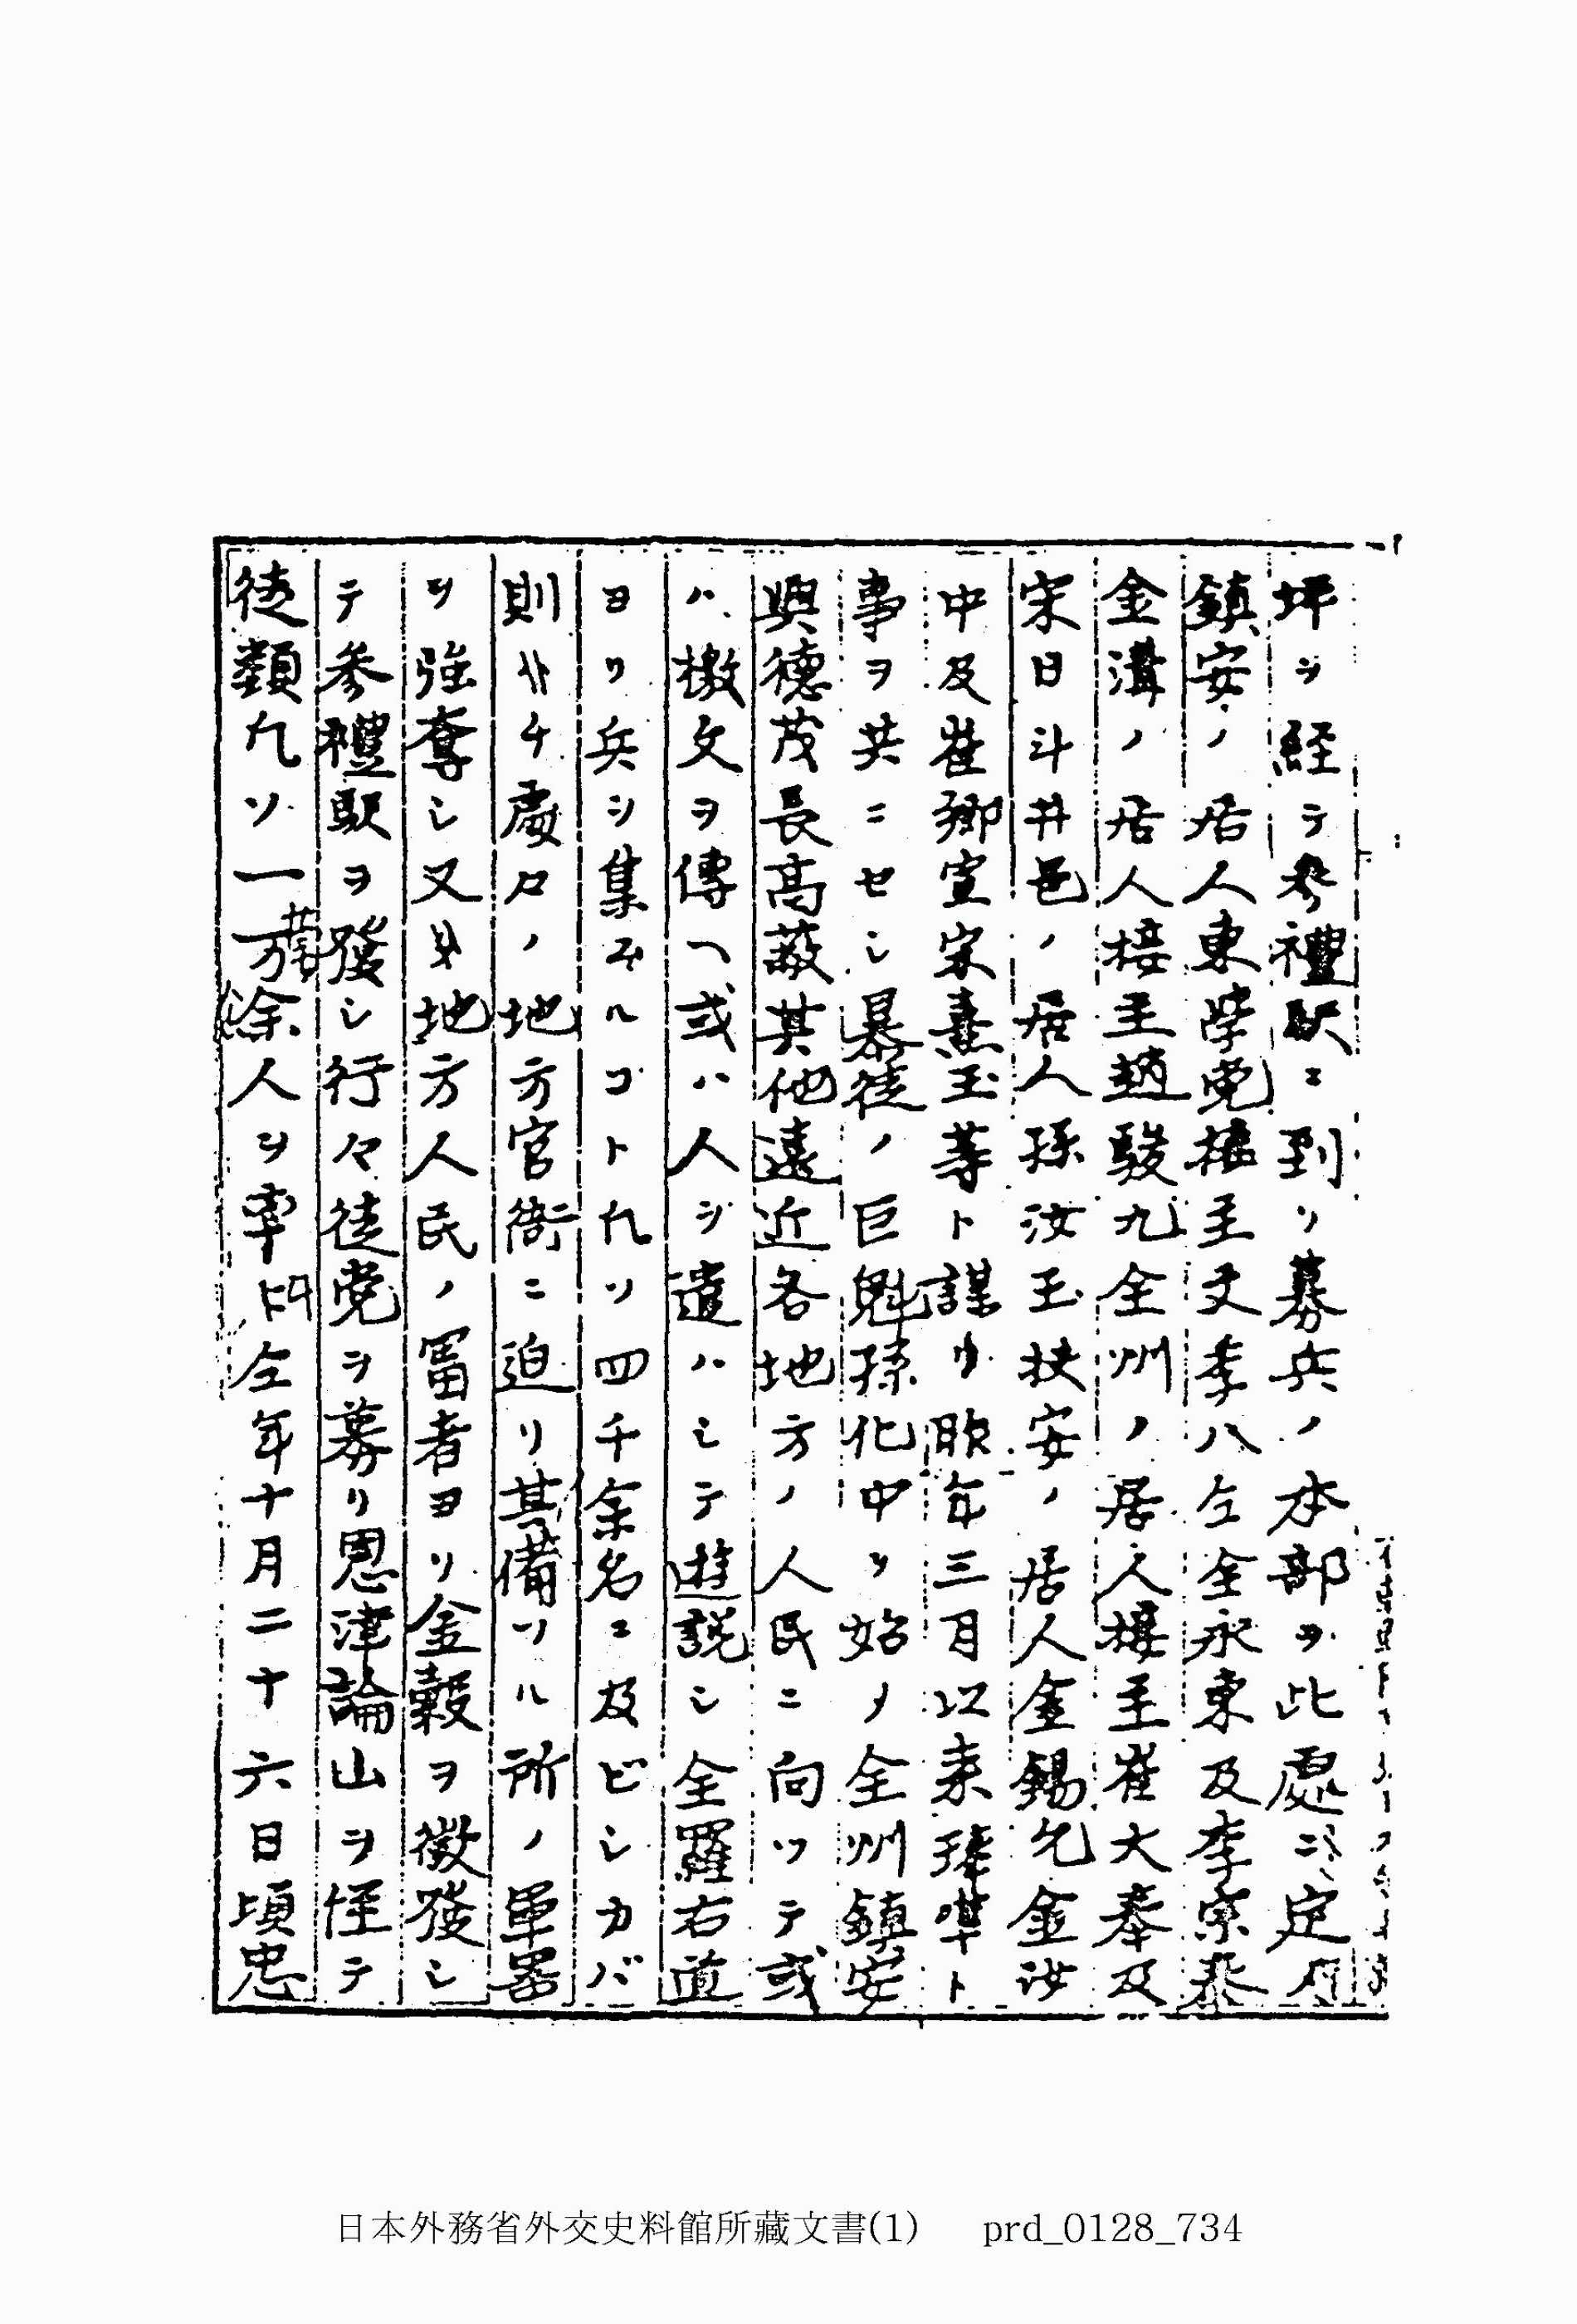 坪ヲ経テ参禮駅ニ到リ募兵ノ本部ヲ此處ニ定
鎮安ノ居人東学党接主文季八仝全永東及李宗泰
金溝ノ居人接主趙駿九全州ノ居人接主崔大奉及
宋日斗井邑ノ居人孫汝玉扶安ノ居人金錫允金汝
中及崔卿宣宋憙玉等ト謀リ昨年三月以来擧ト
事ヲ共ニセシ暴徒ノ巨魁孫化中ヲ始メ全州鎮安
興德茂長高敞其他遠近各地方ノ人民ニ向ツテ或
ハ檄文ヲ傳ヘ或ハ人ヲ遣ハシテ遊説シ全羅右道
ヨリ兵ヲ集ムルコト凡ソ四千余名ニ及ビシカバ
則ハチ處々ノ地方官衙ニ迫リ其備ソル所ノ軍器
ヲ強奪シ又タ地方人民ノ富者ヨリ金穀ヲ徴發シ
テ参禮駅ヲ發シ行々徒党ヲ募リ恩津論山ヲ怪テ
徒類凡ソ一萬余人ヲ率仝年十月二十六日頃忠
日本外務省外交史料館所藏文書(1) prd_0128_734